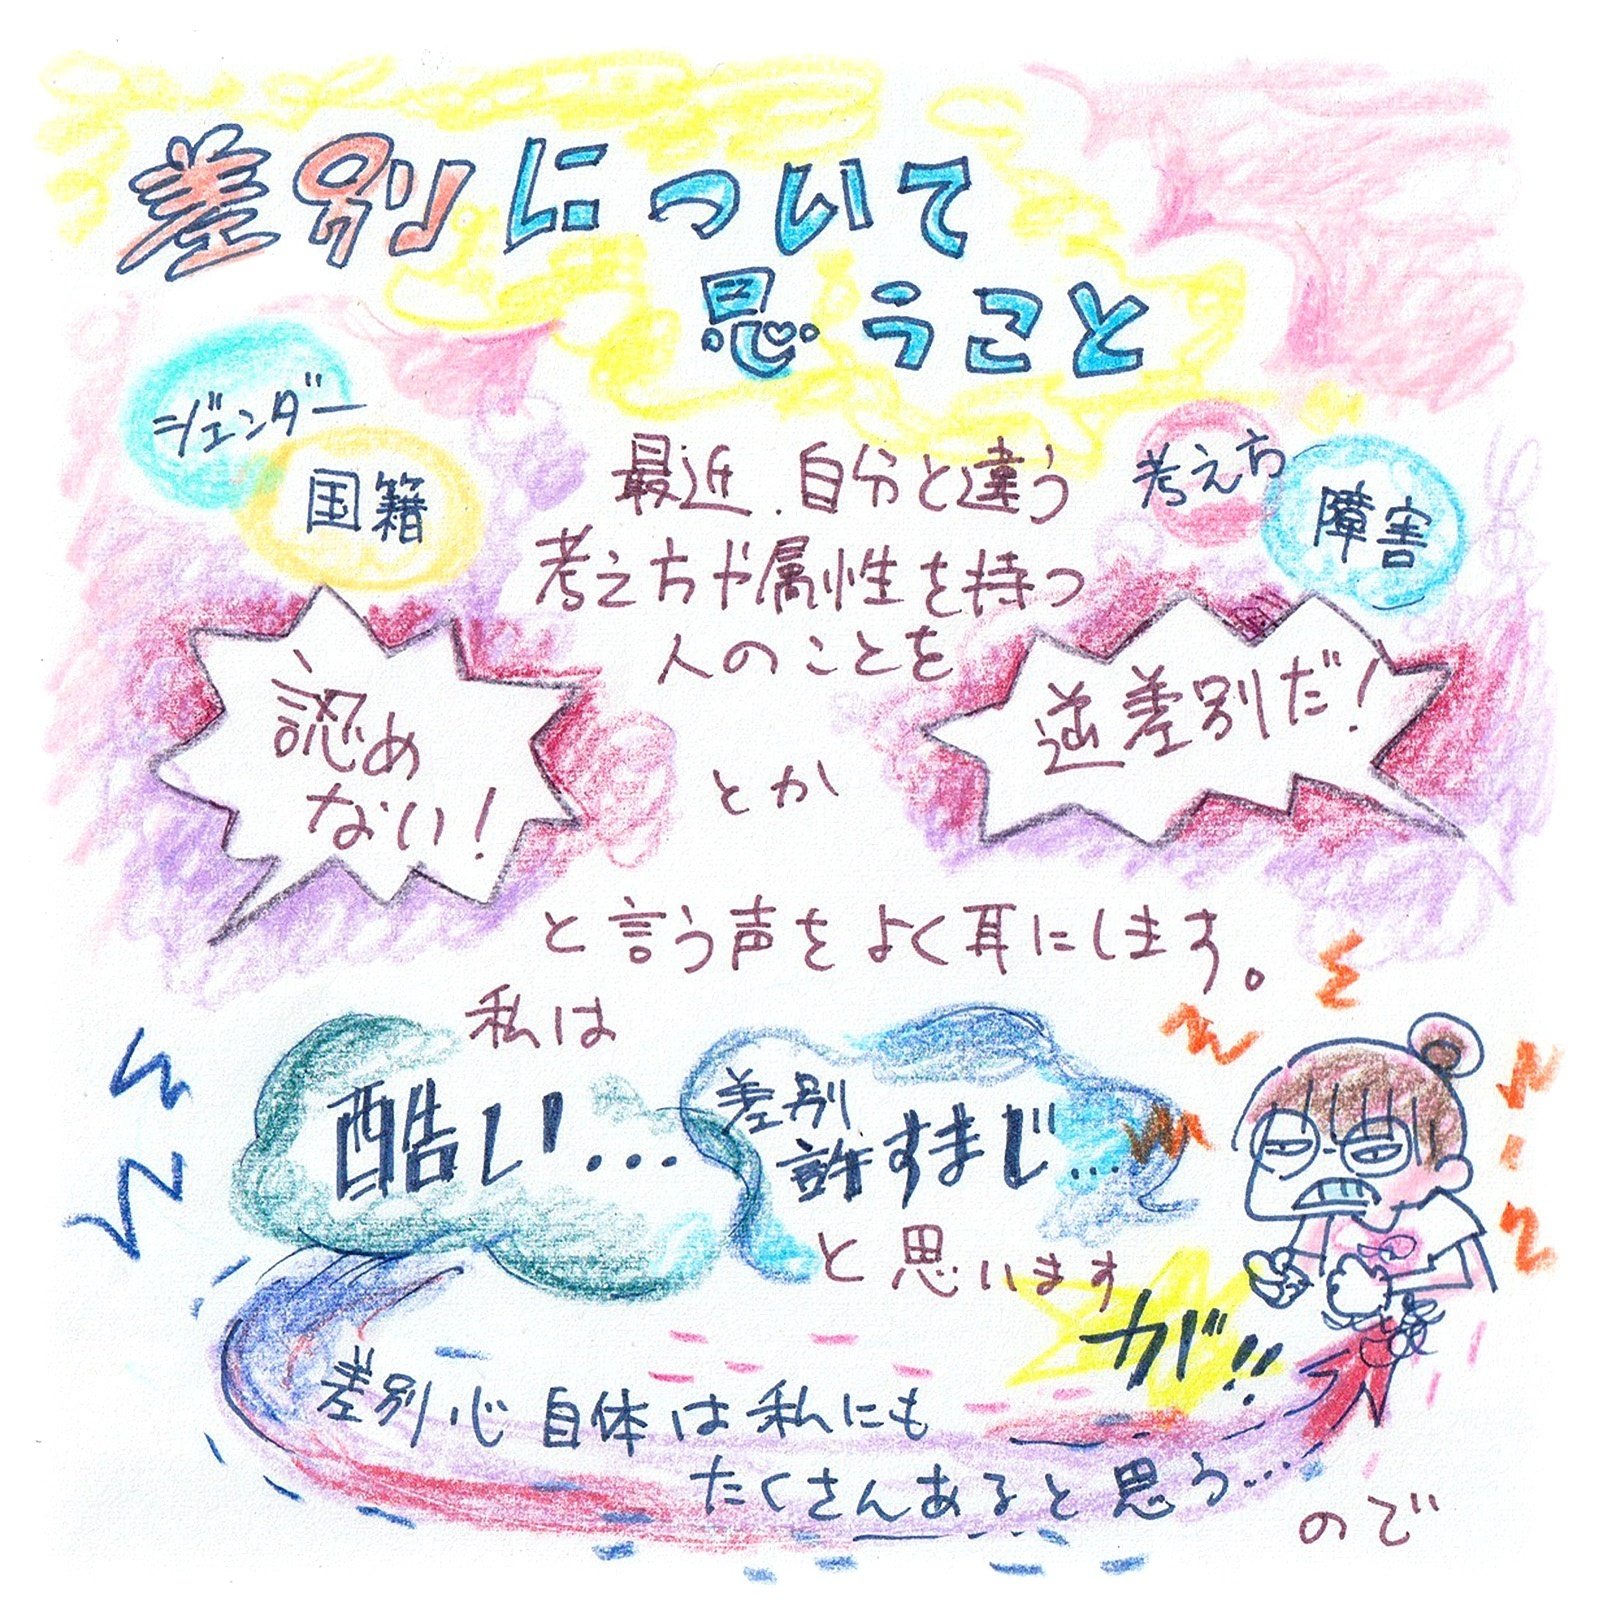 差別について
思うこと
ジェンダー
国籍
考え方
障害
最近、自分と違う
考え方や属性を持つ
人のことを
認め
ない!
とか
逆差別だ!
と言う声をよく耳にします。
私は
酷い...
差別
許すまじ...
と思います
が!!
差別心自体は私にも
たくさんあると思う...
ので